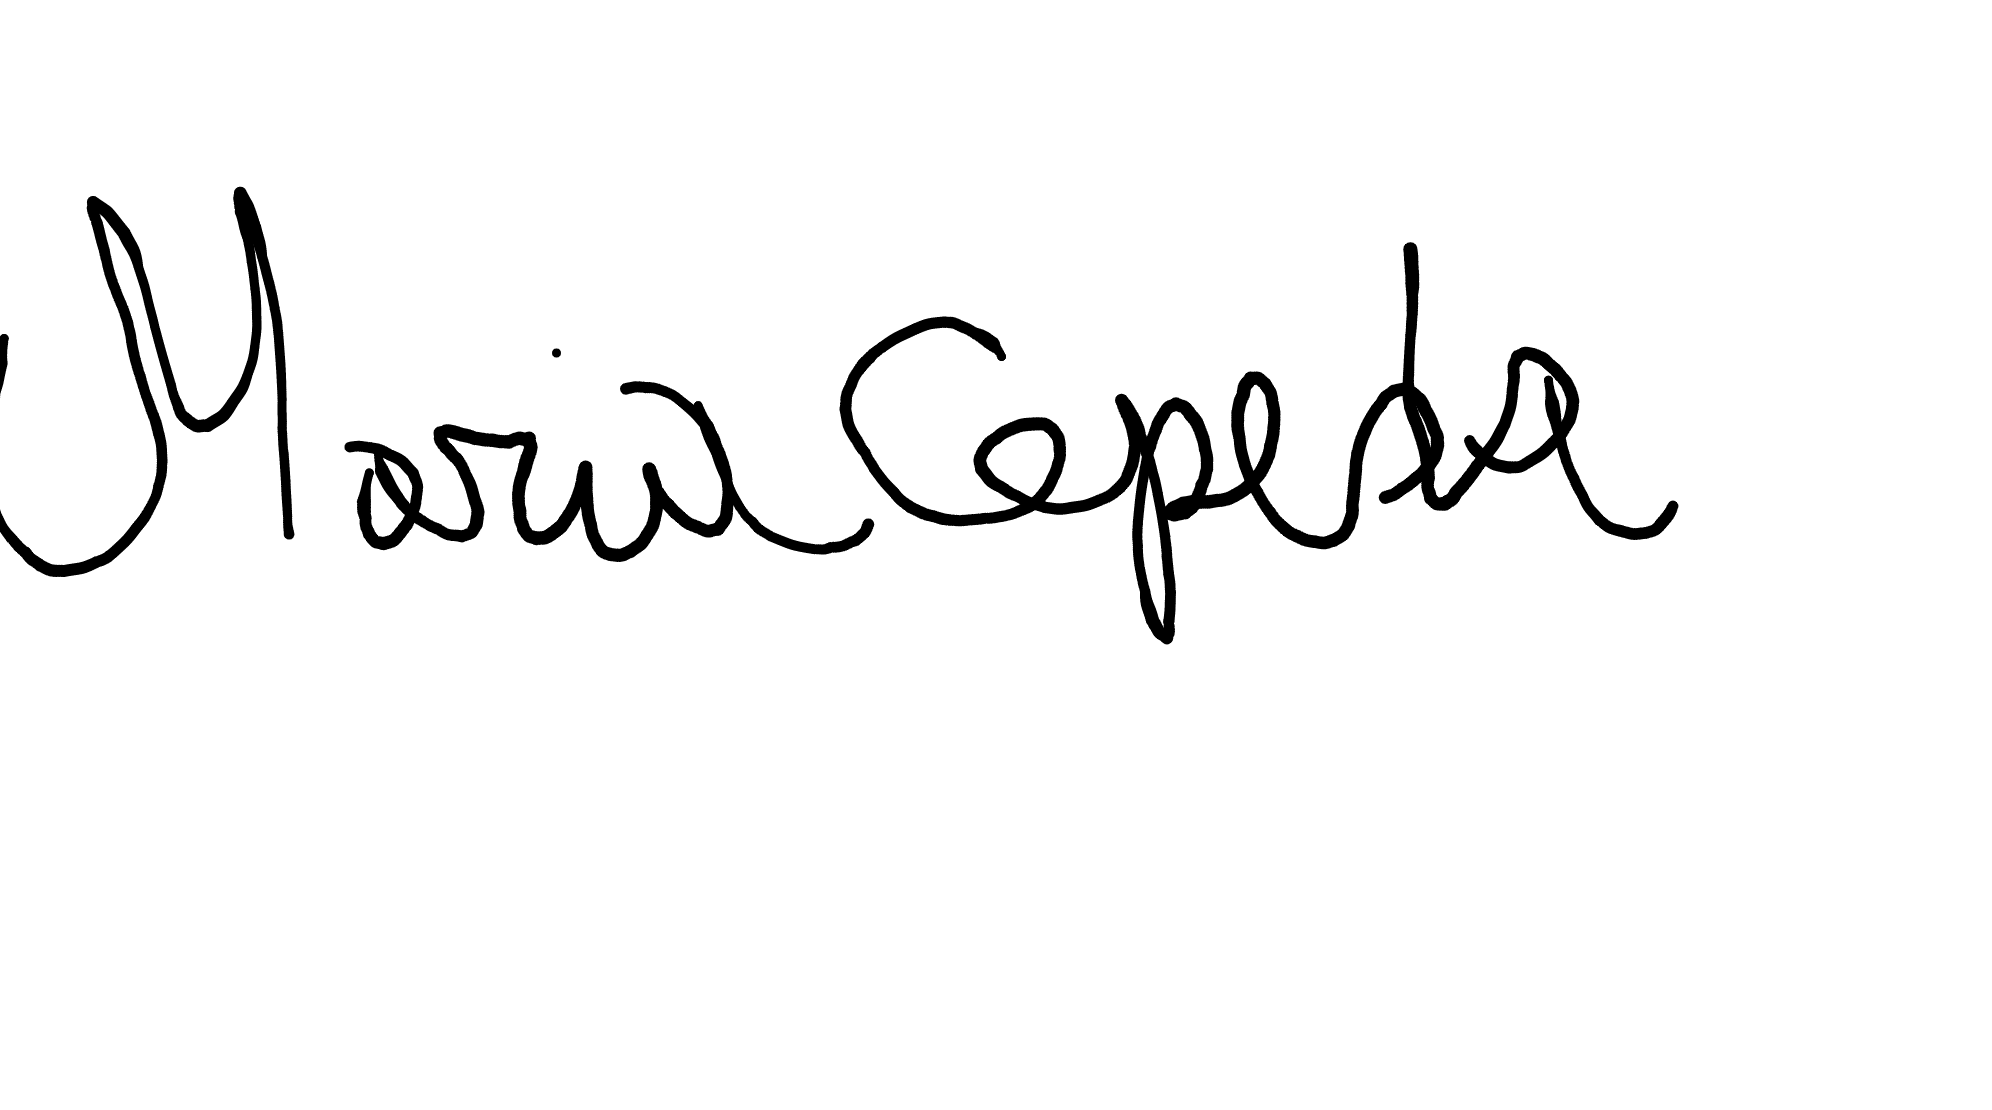 Maria Cepeda